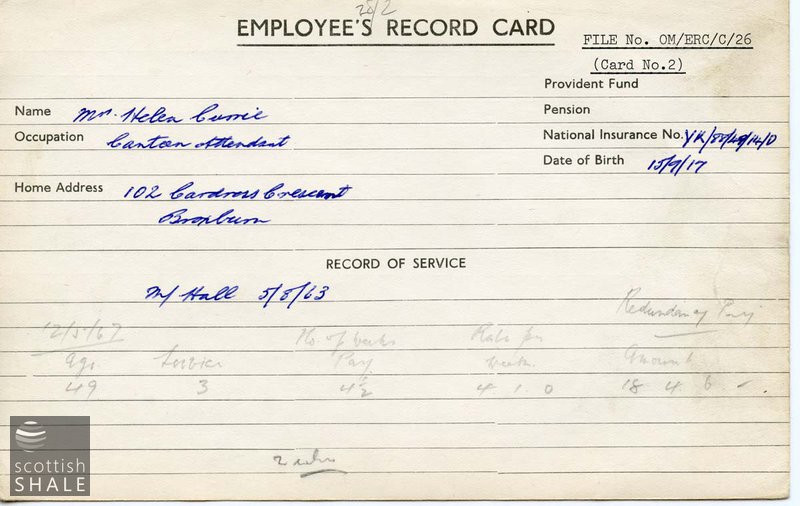 28/2
EMPLOYEE'S RECORD CARD
FILE No. OM/ERC/C/26
(Card No.2)
Provident Fund
Name Mrs. Helen Currie
Pension
Occupation Canteen Attendant
National Insurance No. YK/88/49/14/D
Date of Birth 15/9/17
Home Address 102 Cardross Crescent
Broxburn
RECORD OF SERVICE
M/ Hall 5/8/63
Redundancy Pay
12/5/67 No of weeks Rate per
Age Service Pay week Amount
49 3 4½ 4 1 0 18 4 6 -.
2 wks
scottish
SHALE